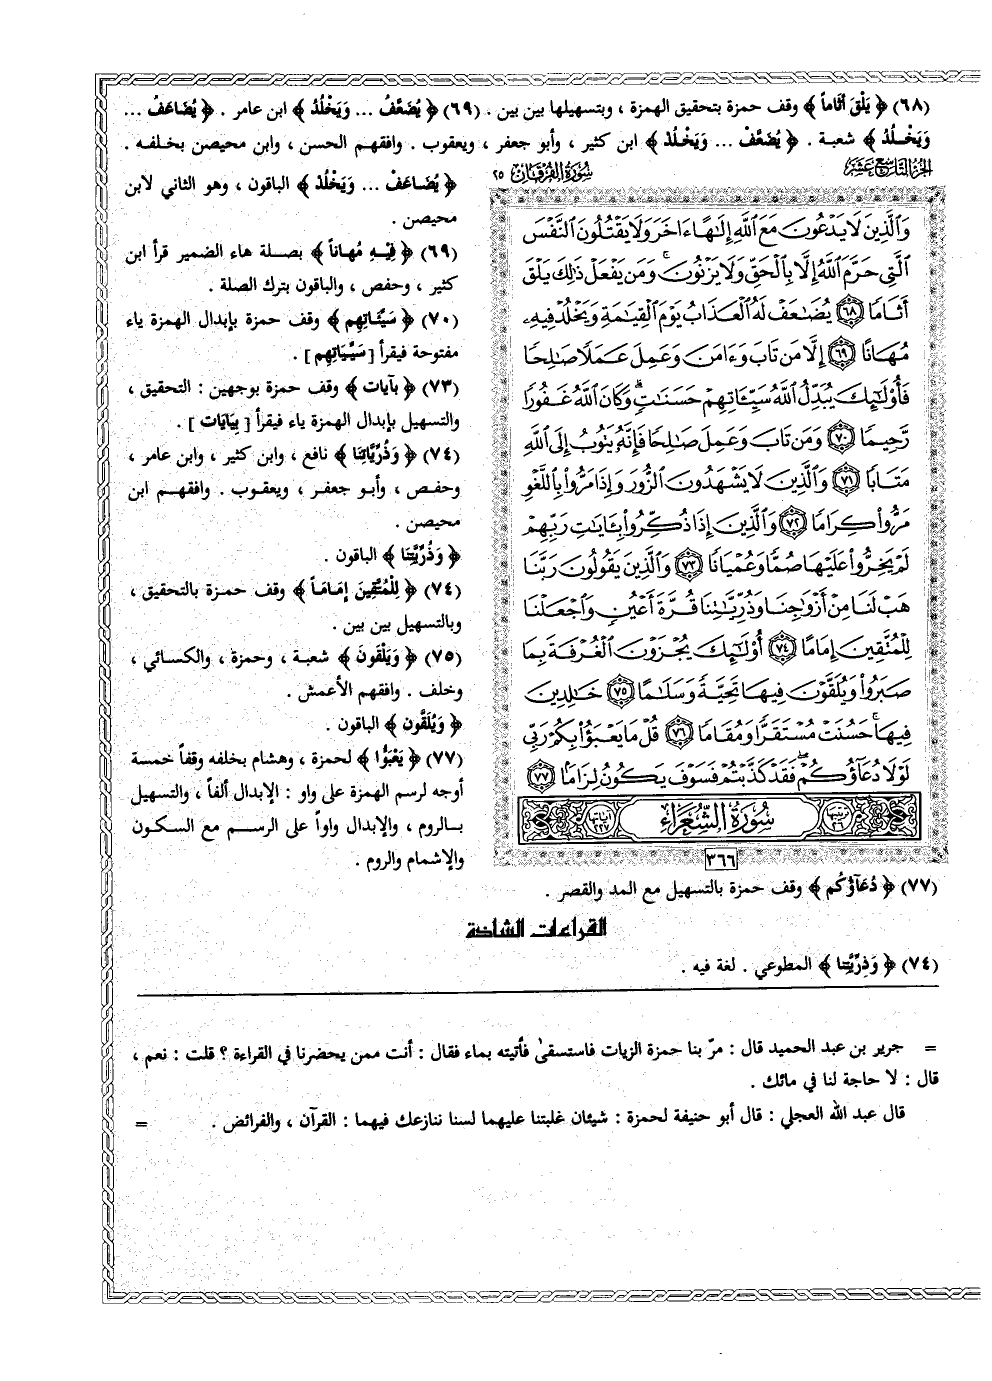 (٦٨) ﴿ يَلْقَ أثَاماً ﴾ وقف حمزة بتحقيق الهمزة ، وبتسهيلها بين بين . (٦٩) ﴿ يُضَعَّفُ ... وَيَخْلُدُ ﴾ ابن عامر . ﴿ يُضَاعَفُ ...
وَيَخْلُدُ ﴾ شعبة . ﴿ يُضَعَّفْ ... وَيَخْلُدْ ﴾ ابن كثير ، وأبو جعفر ، ويعقوب . وافقهم الحسن ، وابن محيصن بخلفه .
الجزء التاسع عشر
سورة الفرقان ٢٥
﴿ يُضَاعَفْ ... وَيَخْلُدْ ﴾ الباقون ، وهو الثاني لابن
محيصن .
(٦٩) ﴿ فِيْهِ مُهاناً ﴾ بصلة هاء الضمير قرأ ابن
كثير ، وحفص ، والباقون بترك الصلة .
(٧٠) ﴿ سَيِّئَاتِهِم ﴾ وقف حمزة بإبدال الهمزة ياء
مفتوحة فيقرأ [ سَيِّيَاتِهِم ] .
(٧٣) ﴿ بآيات ﴾ وقف حمزة بوجهين : التحقيق ،
والتسهيل بإبدال الهمزة ياء فيقرأ [ بِيَايَات ] .
(٧٤) ﴿ وَذُرِّيَّاتِنَا ﴾ نافع ، وابن كثير ، وابن عامر ،
وحفص ، وأبو جعفر ، ويعقوب . وافقهم ابن
محيصن .
﴿ وَذُرِّيَّتِنَا ﴾ الباقون .
(٧٤) ﴿ لِلْمُتَّقِينَ إمَاماً ﴾ وقف حمزة بالتحقيق ،
وبالتسهيل بين بين .
(٧٥) ﴿ وَيَلْقَونَ ﴾ شعبة ، وحمزة ، والكسائي ،
وخلف . وافقهم الأعمش .
﴿ وَيُلَقَّون ﴾ الباقون .
(٧٧) ﴿ يَعْبَؤُا ﴾ لحمزة ، وهشام بخلفه وقفاً خمسة
أوجه لرسم الهمزة على واو : الإبدال ألفاً ، والتسهيل
بالروم ، والإبدال واواً على الرسم مع السكون
والإشمام والروم .
وَٱلَّذِينَ لَا يَدْعُونَ مَعَ ٱللَّهِ إِلَٰهًا ءَاخَرَ وَلَا يَقْتُلُونَ ٱلنَّفْسَ
ٱلَّتِى حَرَّمَ ٱللَّهُ إِلَّا بِٱلْحَقِّ وَلَا يَزْنُونَ ۚ وَمَن يَفْعَلْ ذَٰلِكَ يَلْقَ
أَثَامًا ٦٨ يُضَٰعَفْ لَهُ ٱلْعَذَابُ يَوْمَ ٱلْقِيَٰمَةِ وَيَخْلُدْ فِيهِۦ
مُهَانًا ٦٩ إِلَّا مَن تَابَ وَءَامَنَ وَعَمِلَ عَمَلًا صَٰلِحًا
فَأُوْلَٰٓئِكَ يُبَدِّلُ ٱللَّهُ سَيِّـَٔاتِهِمْ حَسَنَٰتٍ ۗ وَكَانَ ٱللَّهُ غَفُورًا
رَّحِيمًا ٧٠ وَمَن تَابَ وَعَمِلَ صَٰلِحًا فَإِنَّهُۥ يَتُوبُ إِلَى ٱللَّهِ
مَتَابًا ٧١ وَٱلَّذِينَ لَا يَشْهَدُونَ ٱلزُّورَ وَإِذَا مَرُّوا۟ بِٱللَّغْوِ
مَرُّوا۟ كِرَامًا ٧٢ وَٱلَّذِينَ إِذَا ذُكِّرُوا۟ بِـَٔايَٰتِ رَبِّهِمْ
لَمْ يَخِرُّوا۟ عَلَيْهَا صُمًّا وَعُمْيَانًا ٧٣ وَٱلَّذِينَ يَقُولُونَ رَبَّنَا
هَبْ لَنَا مِنْ أَزْوَٰجِنَا وَذُرِّيَّٰتِنَا قُرَّةَ أَعْيُنٍ وَٱجْعَلْنَا
لِلْمُتَّقِينَ إِمَامًا ٧٤ أُوْلَٰٓئِكَ يُجْزَوْنَ ٱلْغُرْفَةَ بِمَا
صَبَرُوا۟ وَيُلَقَّوْنَ فِيهَا تَحِيَّةً وَسَلَٰمًا ٧٥ خَٰلِدِينَ
فِيهَا ۚ حَسُنَتْ مُسْتَقَرًّا وَمُقَامًا ٧٦ قُلْ مَا يَعْبَؤُا۟ بِكُمْ رَبِّى
لَوْلَا دُعَآؤُكُمْ ۖ فَقَدْ كَذَّبْتُمْ فَسَوْفَ يَكُونُ لِزَامًا ٧٧
ترتيبها ٢٦ سورة الشعراء آياتها ٢٢٧
٣٦٦
(٧٧) ﴿ دُعَآؤُكُم ﴾ وقف حمزة بالتسهيل مع المد والقصر .
القراءات الشاذة
(٧٤) ﴿ وَذِرِّيَّتِنا ﴾ المطوعي . لغة فيه .
= جرير بن عبد الحميد قال : مرّ بنا حمزة الزيات فاستسقىٰ فأتيته بماء فقال : أنت ممن يحضرنا في القراءة ؟ قلت : نعم ،
قال : لا حاجة لنا في مائك .
قال عبد الله العجلي : قال أبو حنيفة لحمزة : شيئان غلبتنا عليهما لسنا ننازعك فيهما : القرآن ، والفرائض . =